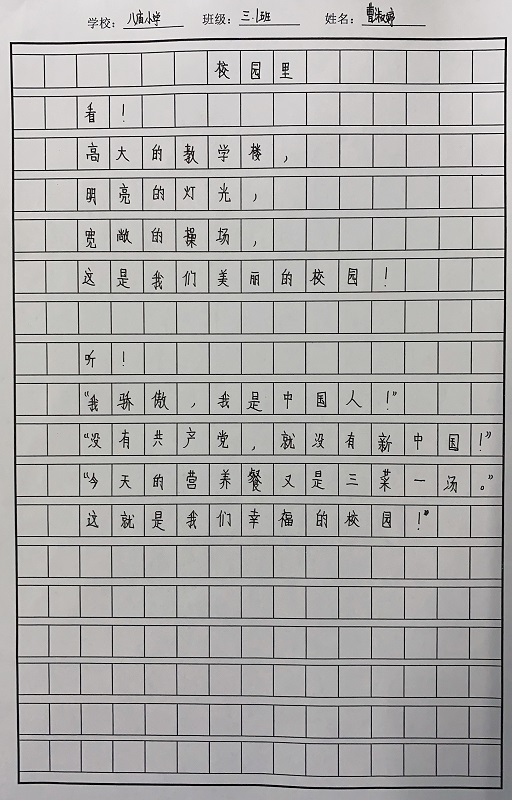 学校：八庙小学 班级：三.1班 姓名：曹淑婷
校园里
看！
高大的教学楼，
明亮的灯光，
宽敞的操场，
这是我们美丽的校园！
听！
“我骄傲，我是中国人！”
“没有共产党，就没有新中国！”
“今天的营养餐又是三菜一汤。”
这就是我们幸福的校园！”